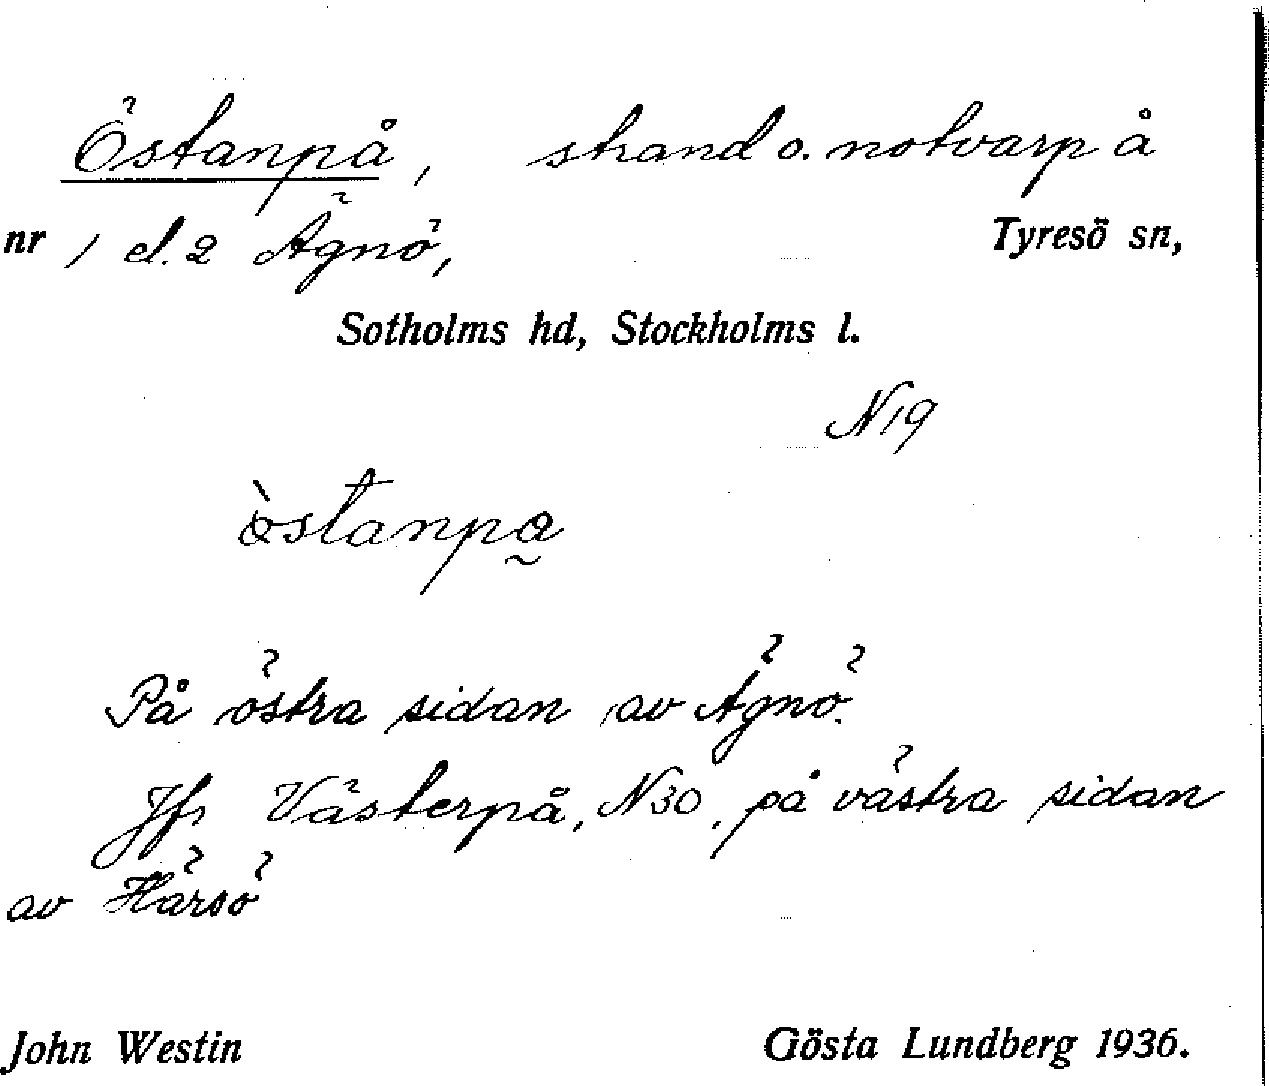 Östanpå, strand o. notvarp å
nr 1 el. 2 Ägnö, Tyresö sn,
Sotholms hd, Stockholms l.
N19
På östra sidan av Ägnö.
Jfr Västerpå, N30, på västra sidan
av Härsö
John Westin Gösta Lundberg 1936.